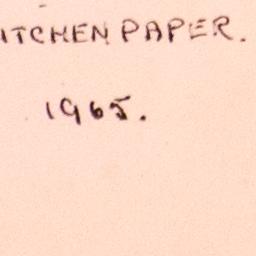 ITCHEN PAPER.
1965.